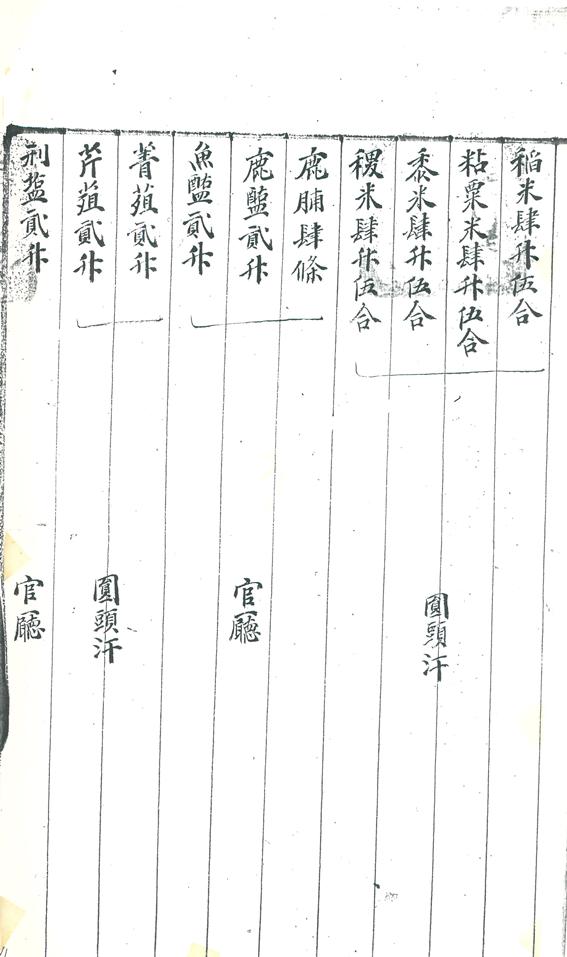 稻米肆升伍合
粘粟米肆升伍合
黍米肆升伍合
稷米肆升伍合
圓頭汗
鹿脯肆條
鹿醢貳升
魚醢貳升
官廳
菁菹貳升
芹菹貳升
圓頭汗
刑盐貳升
官廳